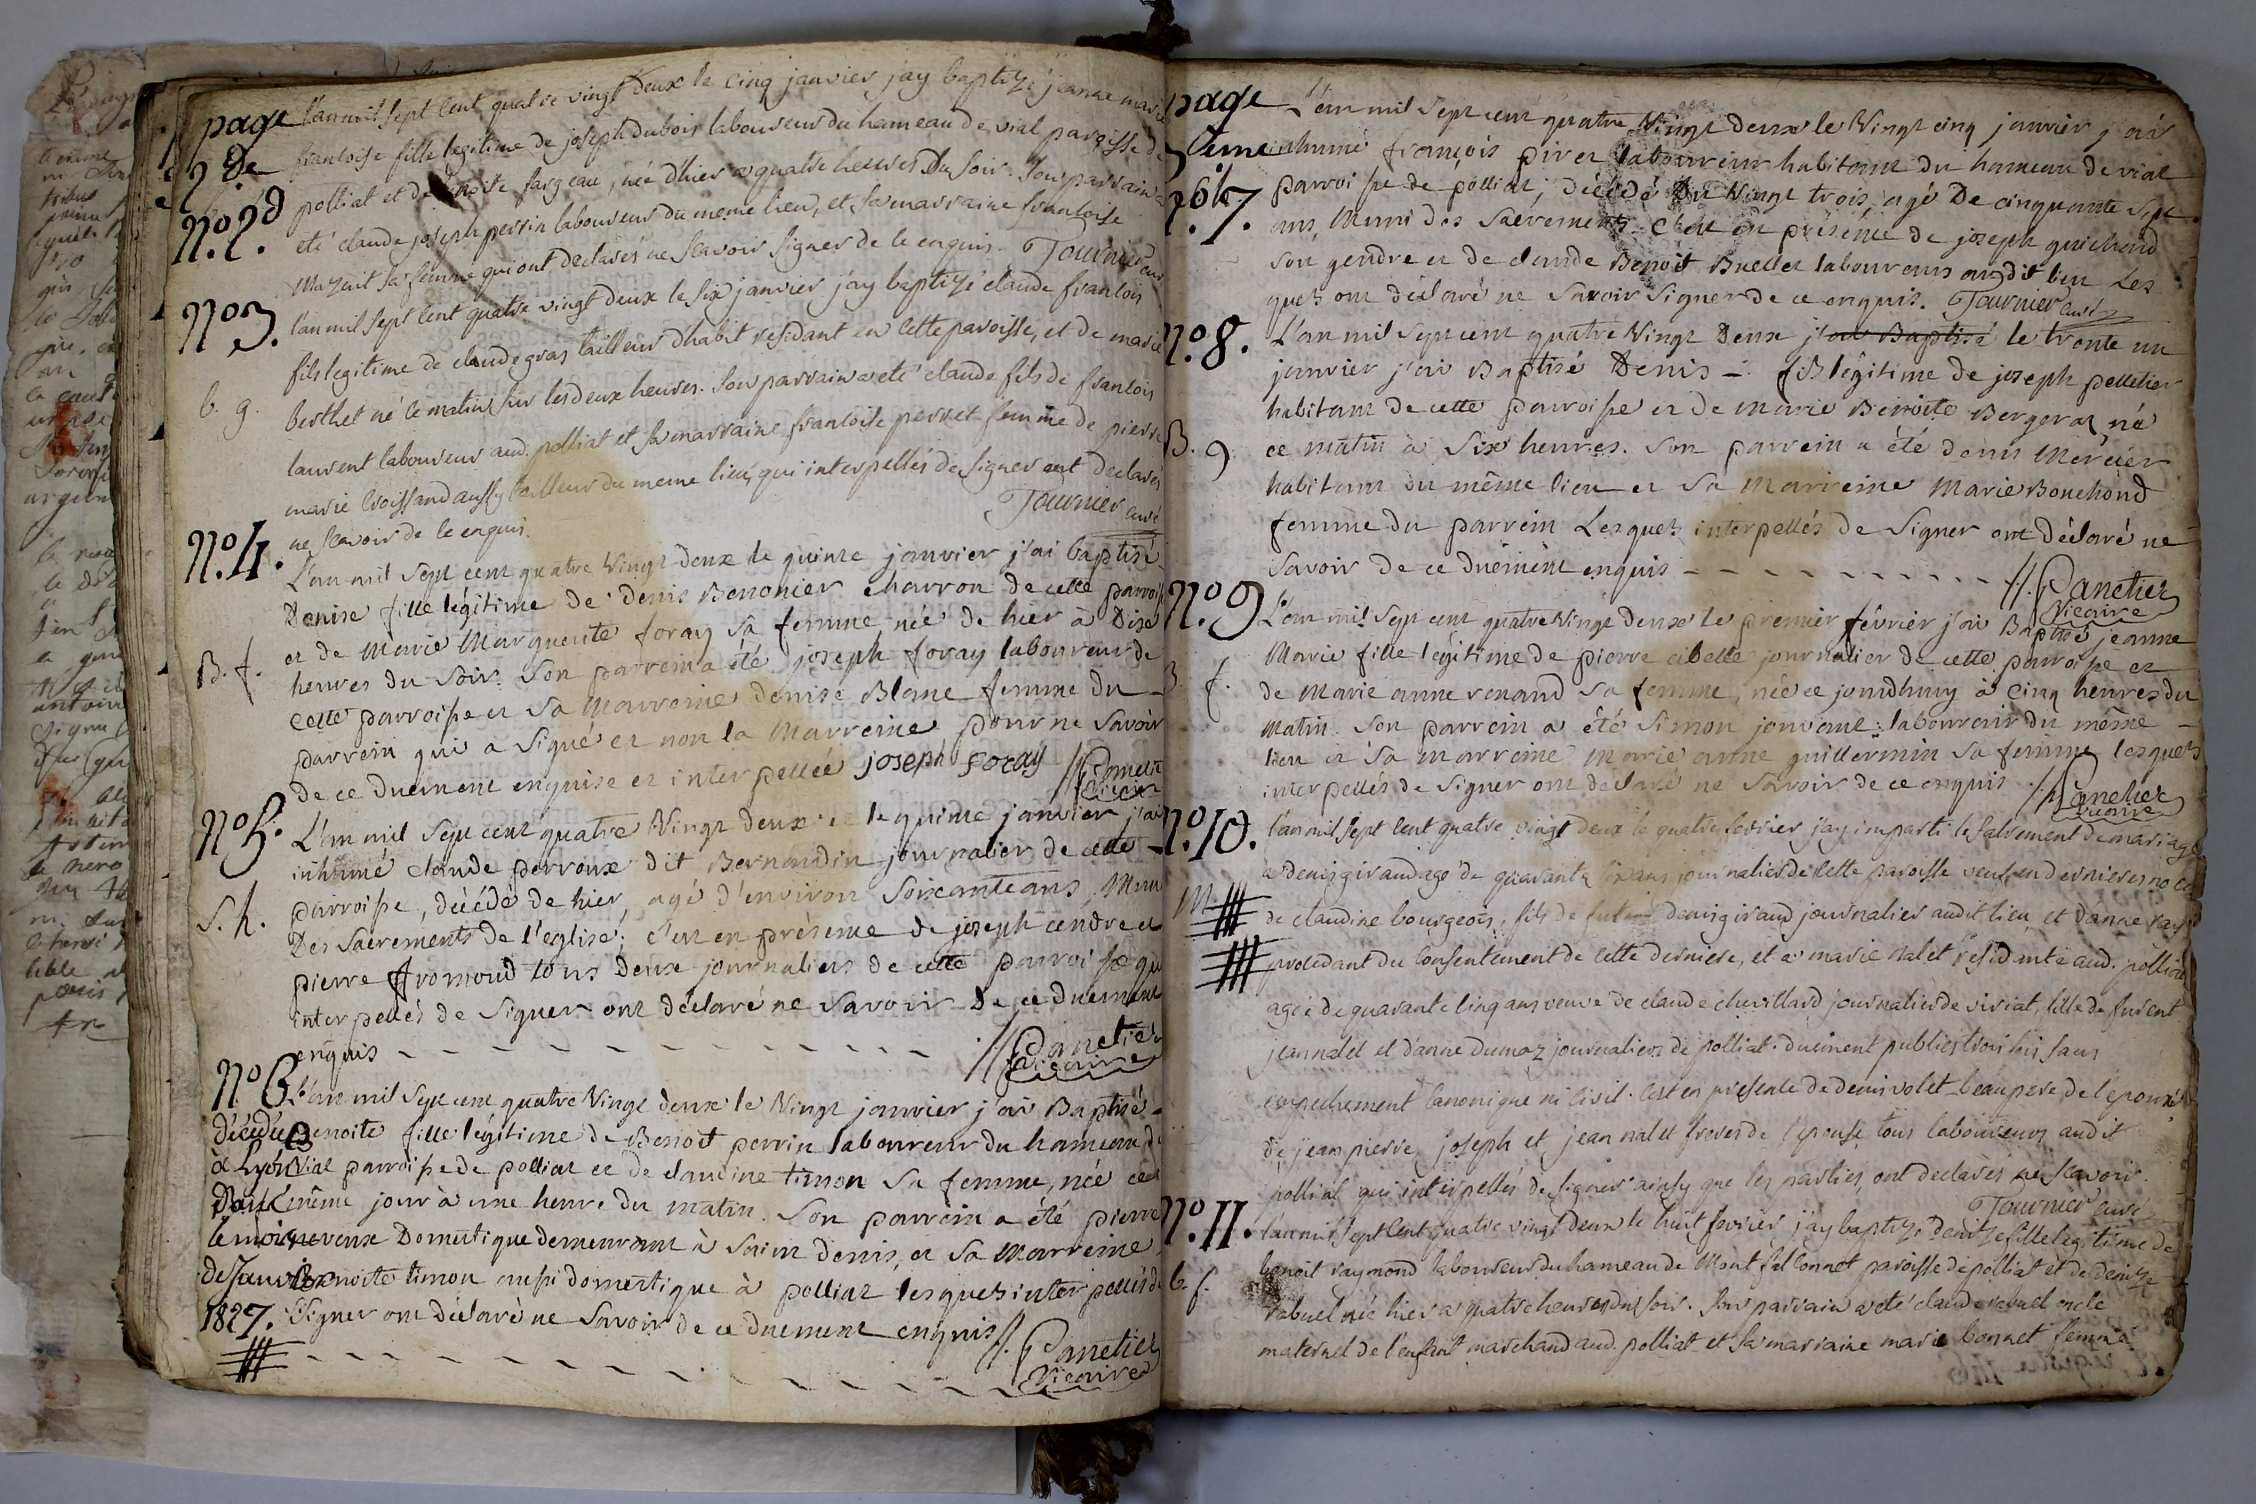 page
2 de
L'an mil sept cent quatre vingt deux le cinq janvier jay baptizé jeanne marie
francoise fille legitime de joseph dubois laboureur du hameau de vial paroisse de
polliat et de fargeau, née d'hier a quatre heures du soir. Son parrain a
N°. 2d
eté claude joseph perrin laboureur du meme lieu, et sa marraine francoise
Mazuit sa femme qui ont declarés ne scavoir signer de le enquis. Tournier curé
N° 3.
l'an mil sept cent quatre vingt deux le six janvier j'ay baptizé claude francois
fils legitime de claude gras tailleur dhabit residant en cette paroisse, et de marie
b. g.
berthet né le matin sur les deux heures. Son parrain a eté claude fils de francois
laurent laboureur aud. polliat et sa marraine francoise perret femme de pierre
marie croissand aussy tailleur du meme lieu, qui interpellés de signer ont declarés
ne scavoir de le enquis. Tournier curé
N°. 4.
L'an mil sept cent quatre Vingt deux le quinze janvier j'ai baptisé
Denise fille légitime de denis Benonier charron de cette parroisse
et de Marie Marguerite foray sa femme née de hier à Dix
B. f.
heures du soir. Son parrein a été joseph foray laboureur de
cette parroisse et sa Marreine denise Blanc femme du
parrein qui a signé et non la Marreine pour ne savoir
de ce Duement enquise et interpellée joseph foray //Panetier
Vicaire
N° 5.
L'an mil sept cent quatre Vingt deux et le quinze janvier j'ai
inhumé claude perroux dit Bernardin journalier de cette
parroisse, décédé de hier, agé d'environ soixante ans, Muni
S. h.
Des sacrements de l'eglise; c'est en présence de joseph cendre et
pierre fromond tous Deux journaliers de cette parroisse qui
interpellés de signer ont déclaré ne savoir De ce duement
enquis - - - - - - - - - - - //Panetier
Vicaire
N° 6.
L'an mil sept cent quatre Vingt deux le Vingt janvier j'ai Baptisé
décédée
Benoite fille légitime de Benoit perrin laboureur du hameau de
à Lyon
Vial parroisse de polliat et de claudine timon sa femme, née ce
dans
même jour à une heure du matin. Son parrein a été pierre
le mois
neveux Domestique demeurant à saint denis, et sa Marreine
de Janvier
Benoite timon aussi domestique à polliat lesquels interpellés de
1827.
Signer ont déclaré ne savoir de ce duement enquis //. Panetier
Vicaire
page
3eme
L'an mil sept cent quatre Vingt deux le Vingt cinq janvier j'ai
inhumé françois piret laboureur habitant du hameau de vial
N°. 7.
parroisse de polliat, décédé Du Vingt trois, agé De cinquante sept
ans, Muni des sacrements. C'est en présence de joseph guichond
son gendre et de claude Benoit Buellet laboureurs audit lieu Les
quels ont déclaré ne savoir signer de ce enquis. Tournier curé
N°. 8.
L'an mil sept cent quatre Vingt Deux j'ai Baptisé le trente un
janvier j'ai Baptisé Denis - fils légitime de joseph pelletier
habitant de cette parroisse et de Marie Benoite Bergerat, né
B. g.
ce matin à six heures. Son parrein a été denis Mercier
habitant du même lieu et sa Marreine Marie Bouchond
femme du parrein Lesquels interpellés de signer ont déclaré ne
savoir de ce duëment enquis - - - - - - - - - //. Panetier
Vicaire
N°. 9
L'an mil sept cent quatre Vingt deux le premier février j'ai Baptisé jeanne
Marie fille légitime de pierre cibelle journalier de cette parroisse et
B. f.
de Marie anne renaud sa femme, née ce jourdhuy à cinq heures du
Matin. Son parrein a été simon jouvant laboureur du même
lieu et sa marreine Marie anne guillermin sa femme lesquels
interpellés de signer ont déclaré ne savoir de ce enquis. //. Panetier
Vicaire
N°. 10.
l'an mil sept cent quatre vingt deux le quatre fevrier j'ay imparti le sacrement de mariage
a denis giraud agé de quarante six ans journalier de cette paroisse veuf en dernieres noces
M.
de claudine bourgeois, fils de denis giraud journalier audit lieu et danne
procedant du consentement de cette derniere, et a marie nalet residante aud. polliat
agée de quarante cinq ans veuve de claude chevillard journalier de viriat, fille de furent
jean nalet et d'anne dumaz journaliers de polliat. duement publiés trois fois sans
empechement canonique ni civil. C'est en presence de denis volet beau pere de l'epoux
de jean pierre, joseph et jean nalet freres de l'epouse tous laboureurs audit
polliat qui interpellés de signer ainsy que les parties, ont declarés ne scavoir.
Tournier curé
N°. 11.
l'an mil sept cent quatre vingt deux le huit fevrier j'ay baptizé denize fille legitime de
benoit raymond laboureur du hameau de Mont falconnet paroisse de polliat et de denize
b. f.
rabuel née hier a quatre heures du soir. Son parrain a eté claude rabuel oncle
maternel de l'enfant marchand aud. polliat et sa marraine marie bonnet femme